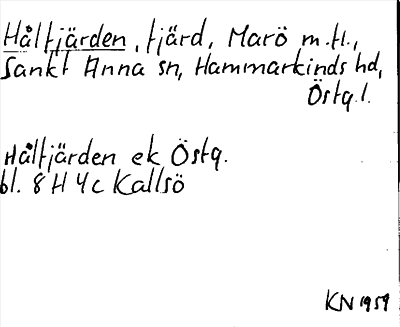 Hålfjärden, fjärd, Marö m.fl.,
Sankt Anna sn, Hammarkinds hd,
Östg.l.
Hålfjärden ek Östg.
bl. 8 H 4c Kallsö
KN 1959